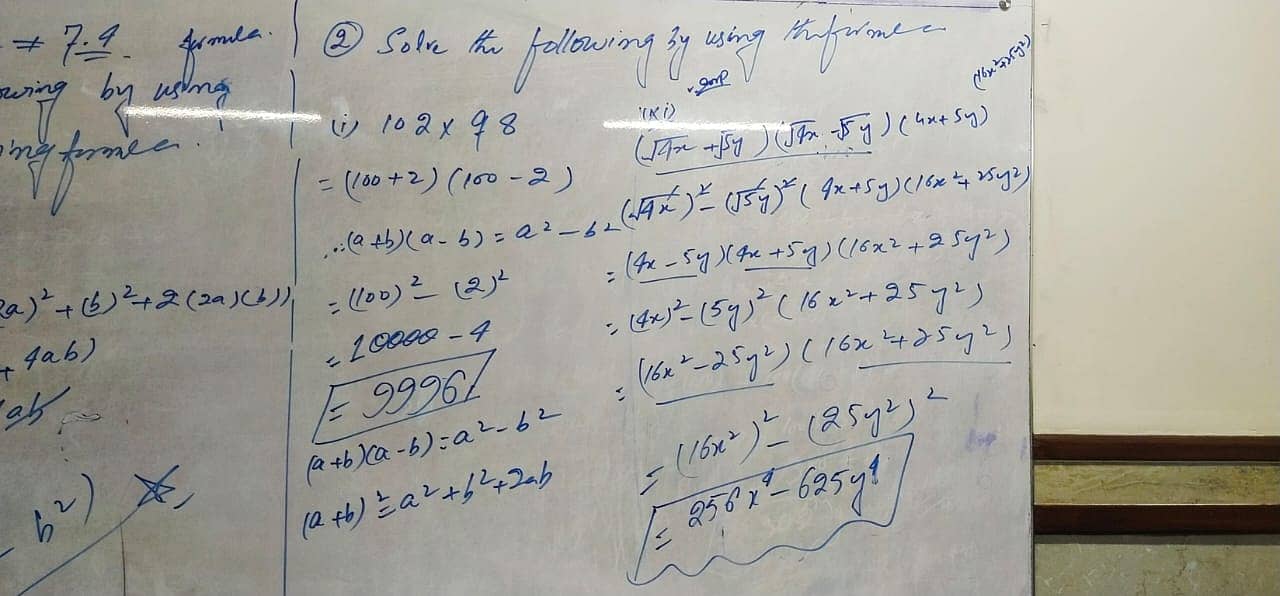 = 7.4 formula.
owing by using
ing formula.
2a)² + (b)² + 2(2a)(b))
+ 4ab)
ab
b²)
② Solve the following by using the formula
(i) 102 x 98
= (100+2) (100-2)
∴ (a+b)(a-b) = a² - b²
= (100)² - (2)²
= 10000 - 4
= 9996
(a+b)(a-b) = a² - b²
(a+b)² = a² + b² + 2ab
(16x²+25y²)
(xi)
(√4x + √5y) (√4x - √5y) (4x+5y)
(√4x)² - (√5y)² (4x+5y) (16x²+25y²)
= (4x-5y)(4x+5y)(16x²+25y²)
= (4x)² - (5y)² (16x²+25y²)
= (16x²-25y²) (16x²+25y²)
= (16x²)² - (25y²)²
= 256x⁴ - 625y⁴